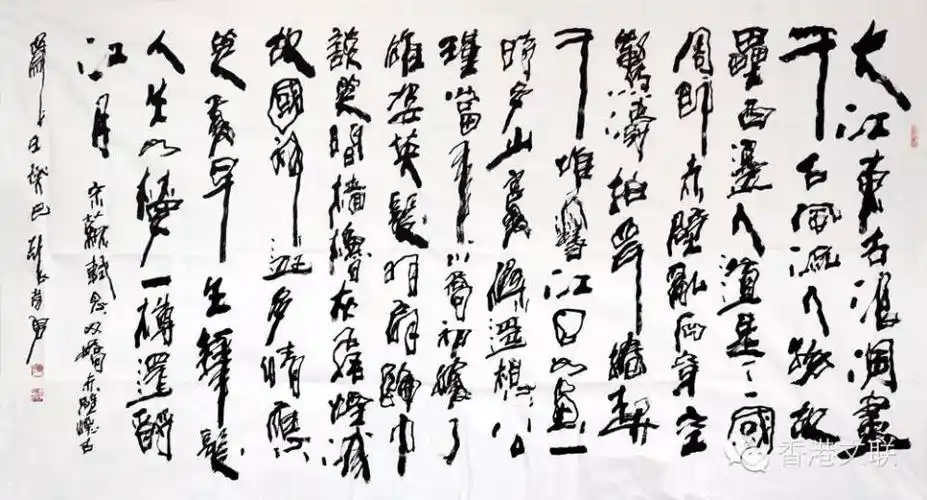 大江東去浪淘盡
千古風流人物故
壘西邊人道是三國
周郎赤壁亂石穿空
驚濤拍岸捲起
千堆雪江山如畫一
時多少豪傑遙想公
瑾當年小喬初嫁了
雄姿英發羽扇綸巾
談笑間檣櫓灰飛煙滅
故國神遊多情應
笑我早生華髮
人生如夢一樽還酹
江月 宋蘇軾念奴嬌赤壁懷古
香港文联